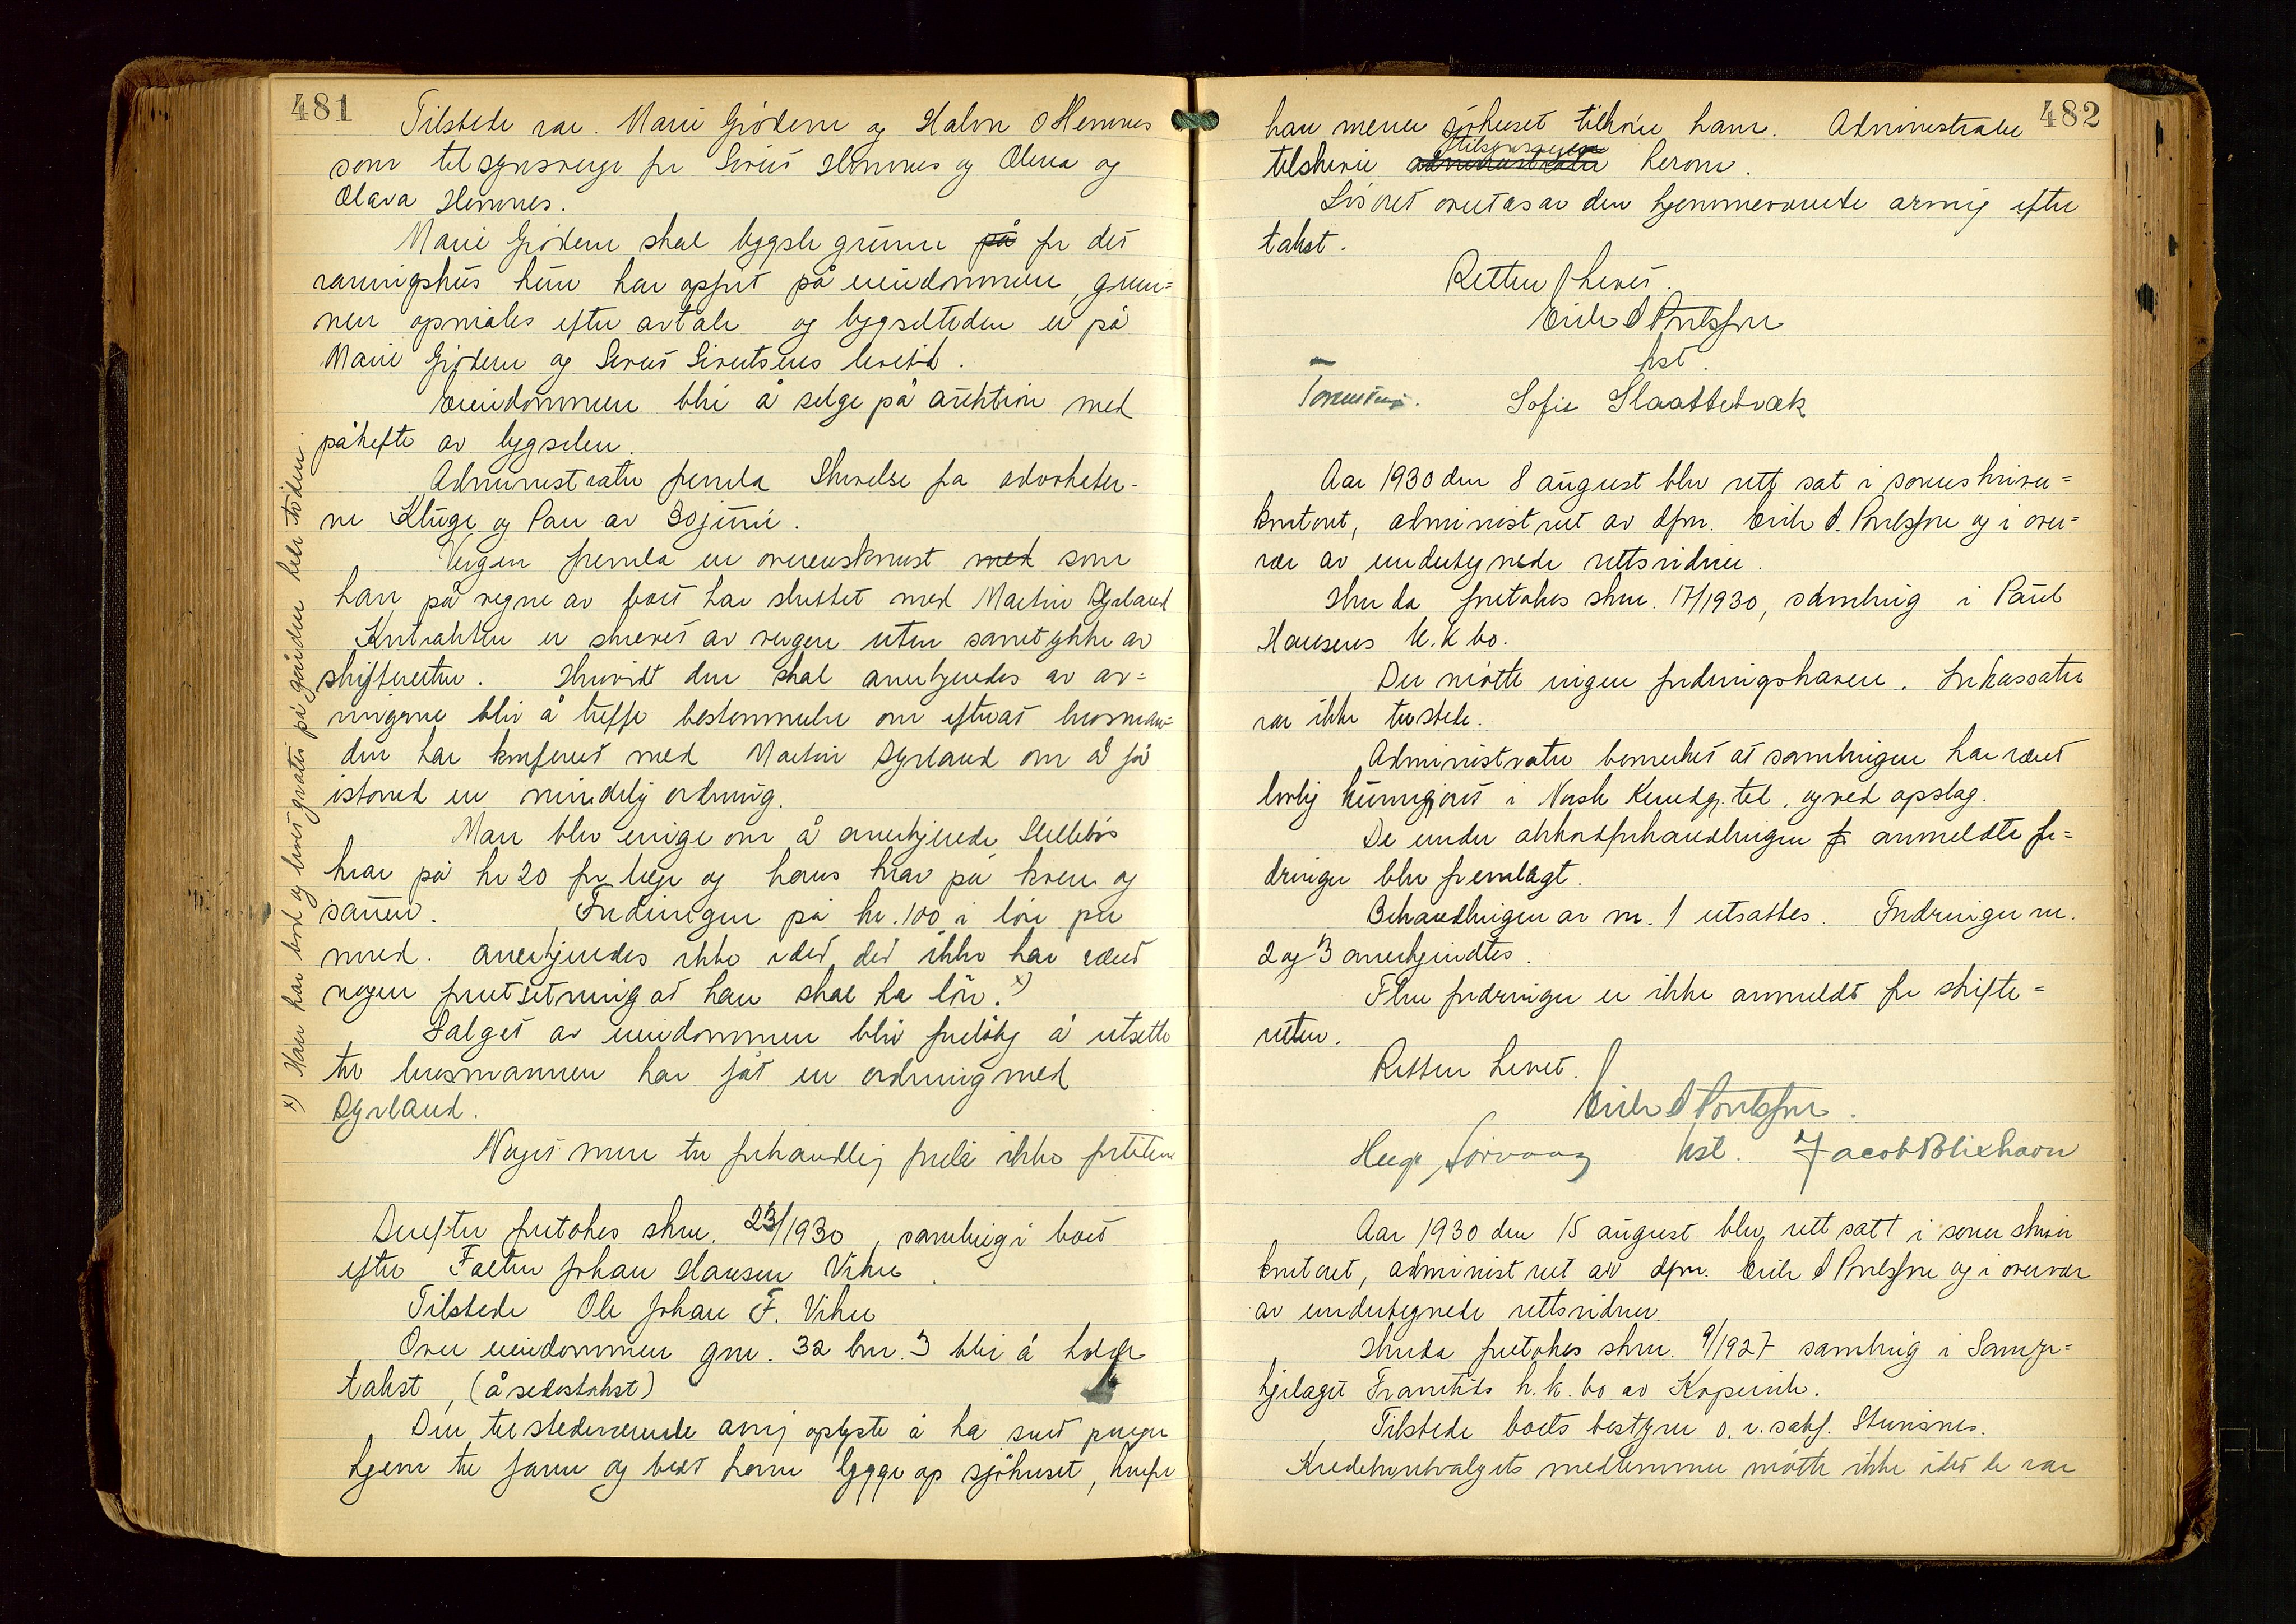 481
Tilstede var. Marie Gjødem og Halvor O Hemnes
som tilsynsverge for Sivert Hemnes og Olena og
Olava Hemnes.
Marie Gjødem skal bygsle grunnen på for det
våningshus hun har opført på eiendommen, grun=
nen opmåles efter avtale og bygseltiden er på
Marie Gjødem og Sivert Sivertsens levetid.
Eiendommen blir å selge på auktion med
påhefte av bygselen.
Administrator fremla Skrivelse fra advokater-
ne Kluge og Pau av 30 juni.
Vergen fremla en overenskomst med som
han på vegne av boet har sluttet med Martin Dyrland
Kontrakten er skrevet av vergen uten samtykke av
skifteretten. Hvorvidt den skal anerkjendes av ar=
vingerne blir å treffe bestemmelse om efterat husman-
den har konferert med Martin Dyrland om å få
istand en mindelig ordning.
Man blev enige om å anerkjende
krav på kr 20 for lege og hans krav på kvern og
sauen. Fordringen på kr. 100 i løn per
mned. anerkjendes ikke idet det ikke har været
nogen forutsetning at han skal ha løn. x)
Salget av eiendommen blir foreløbig å utsette
til husmannen har fåt en ordning med
Dyrland.
Noget mere til forhandling forelå ikke fortiden
x) Han har bodd og levet gratis på gården hele tiden.
Derefter foretokes skm. 23/1930, samling i boet
efter Johan Hansen Vikre.
Tilstede Ole Johan F. Vikre
Over eiendommen gnr. 32 bnr. 3 blir å holde
takst, (åsedestakst)
Den tilstedeværende arving oplyste å ha sent penger
hjem til faren og bedt ham bygge op sjøhuset, hvorfor
482
han mener sjøhuset tilhører ham. Administrator
tilsynsvergen
tilskrive administrator herom.
Løsøret overtas av den hjemmeværende arving efter
takst.
Retten hevet.
Eirik S Poulsson
kst.
Sofie Slaattebræk
Aar 1930 den 8 august blev rett sat i sorenskriver=
kontoret, administrert av dfm. Eirik S. Poulsson og i over=
vær av undertegnede rettsvidner.
Hvorda foretokes skm. 17/1930, samling i Paul
Hansens k.k bo.
Der møtte ingen fordringshavere. Inkassator
var ikke tilstede.
Administrator bemerket at samlingen har været
lovlig kunngjort i Norsk Kundgj.tid. og ved opslag.
De under akkordforhandlingen anmeldte for=
dringer blev fremlagt.
Behandlingen av nr. 1 utsattes. Fordringer nr.
2 og 3 anerkjendtes.
Flere fordringer er ikke anmeldt for skifte=
retten.
Retten hevet.
Eirik S Poulsson.
kst. Jacob Blixhavn
Aar 1930 den 15 august blev rett satt i sorenskriver
kontoret, administrert av dfm. Eirik S Poulsson og i overvær
av undertegnede rettsvidner.
Hvorda foretokes skm. 9/1927 samling i
Framtids k. k. bo av Kopervik.
Tilstede boets bestyrer o. r. sakf. Steinsnes.
Kreditorutvalgets medlemmer møtte ikke idet de var